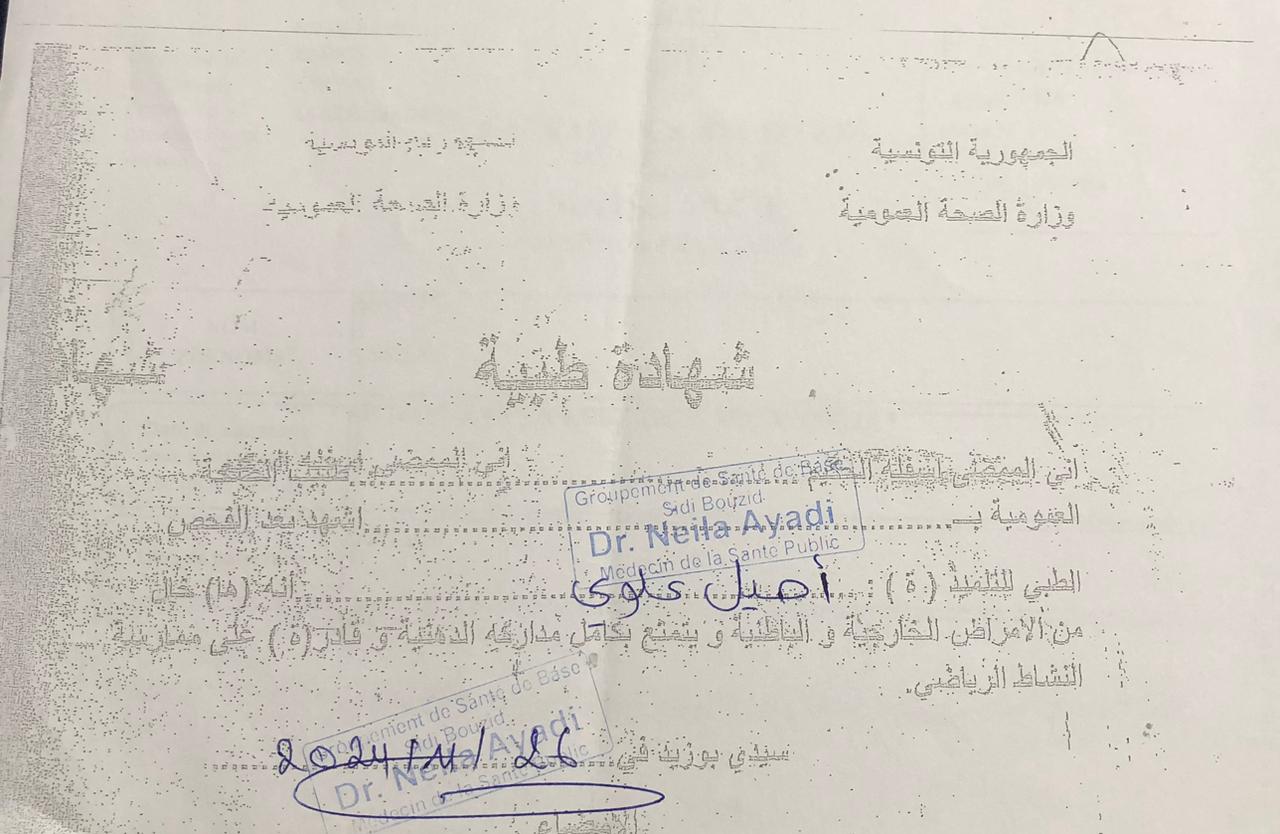 الجمهورية التونسية
وزارة الصحة العمومية
وزارة الصحة العمومية
شهادة طبية
شها
اني الممضي اسفله
اني الممضي اسفله طبيب الصحة
Groupement de Santé de Base
Sidi Bouzid
Dr. Neila Ayadi
Médecin de la Santé Public
العمومية بـ اشهد بعد الفحص
الطبي للتلميذ ( ة ) : أصيل علوي أنه (ها) خال
من الأمراض الخارجية و الباطنية و يتمتع بكامل مداركه الذهنية و قادر(ة) على ممارسة
النشاط الرياضي.
Groupement de Santé de Base
Sidi Bouzid
Dr. Neila Ayadi
Médecin de la Santé Public
سيدي بوزيد في 26 /11/ 2024
الإمضاء